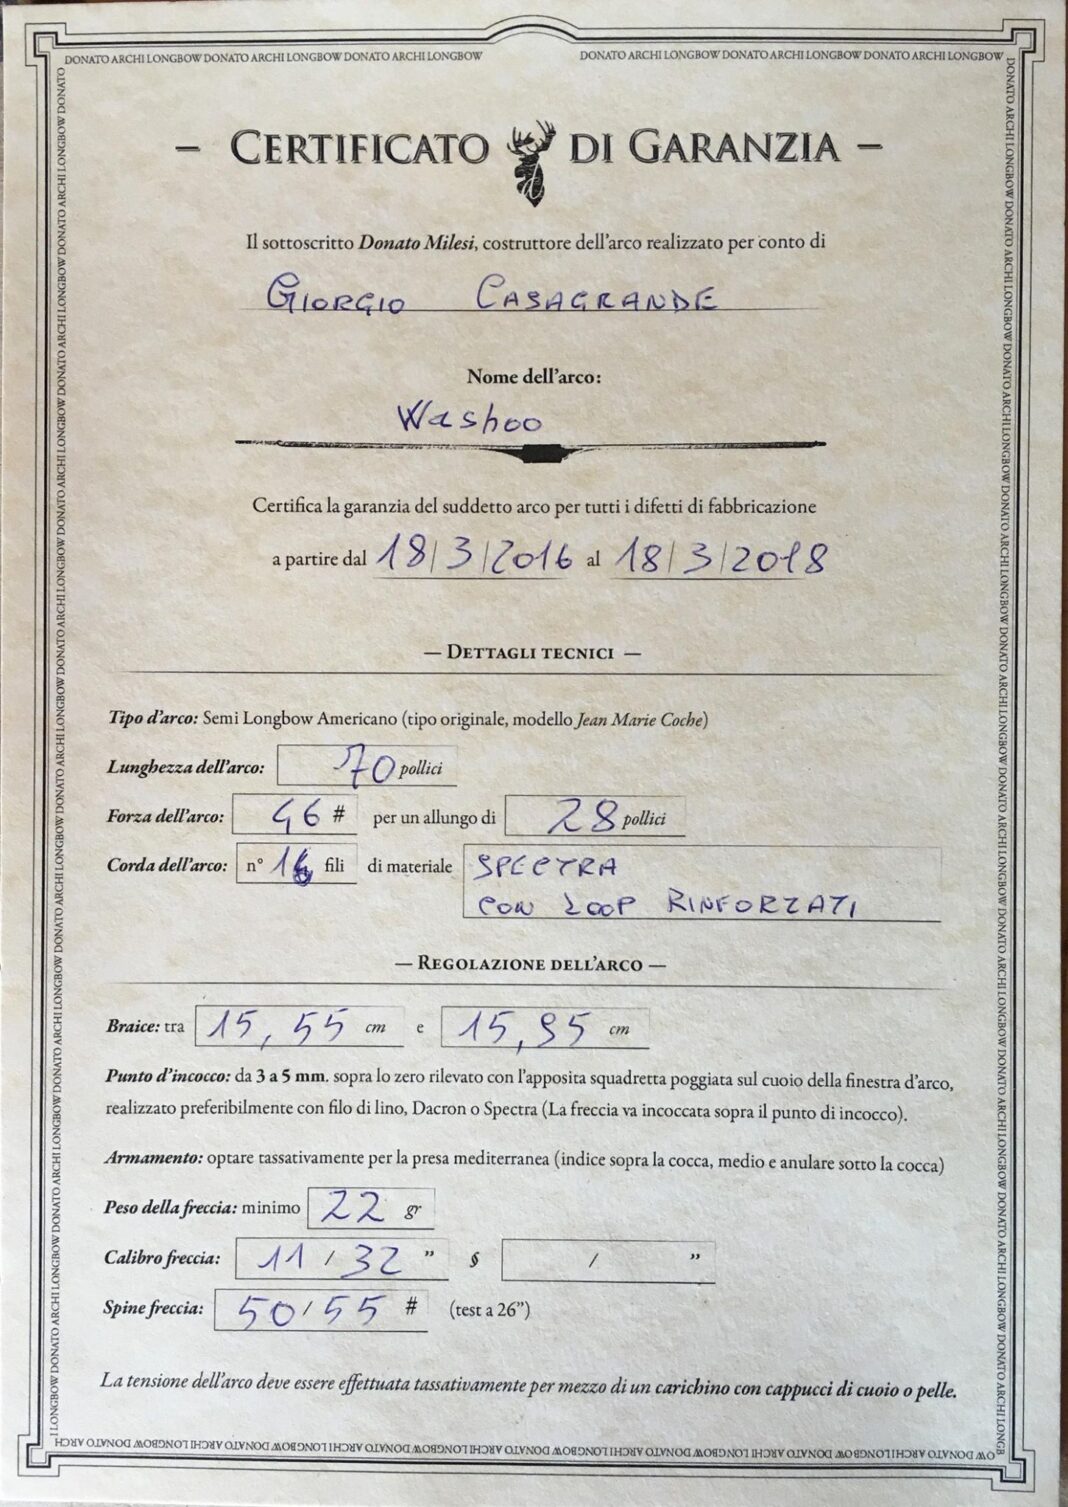 DONATO ARCHI LONGBOW DONATO ARCHI LONGBOW DONATO ARCHI LONGBOW
DONATO ARCHI LONGBOW DONATO ARCHI LONGBOW DONATO ARCHI LONGBOW
– CERTIFICATO DI GARANZIA –
Il sottoscritto Donato Milesi, costruttore dell'arco realizzato per conto di
GIORGIO CASAGRANDE
Nome dell'arco:
Washoo
Certifica la garanzia del suddetto arco per tutti i difetti di fabbricazione
a partire dal 18/3/2016 al 18/3/2018
— DETTAGLI TECNICI —
Tipo d'arco: Semi Longbow Americano (tipo originale, modello Jean Marie Coche)
Lunghezza dell'arco: 70 pollici
Forza dell'arco: 46 # per un allungo di 28 pollici
Corda dell'arco: n° 16 fili di materiale SPECTRA
CON LOOP RINFORZATI
— REGOLAZIONE DELL'ARCO —
Braice: tra 15,55 cm e 15,95 cm
Punto d'incocco: da 3 a 5 mm. sopra lo zero rilevato con l'apposita squadretta poggiata sul cuoio della finestra d'arco,
realizzato preferibilmente con filo di lino, Dacron o Spectra (La freccia va incoccata sopra il punto di incocco).
Armamento: optare tassativamente per la presa mediterranea (indice sopra la cocca, medio e anulare sotto la cocca)
Peso della freccia: minimo 22 gr
Calibro freccia: 11 / 32 " § / "
Spine freccia: 50/55 # (test a 26")
La tensione dell'arco deve essere effettuata tassativamente per mezzo di un carichino con cappucci di cuoio o pelle.